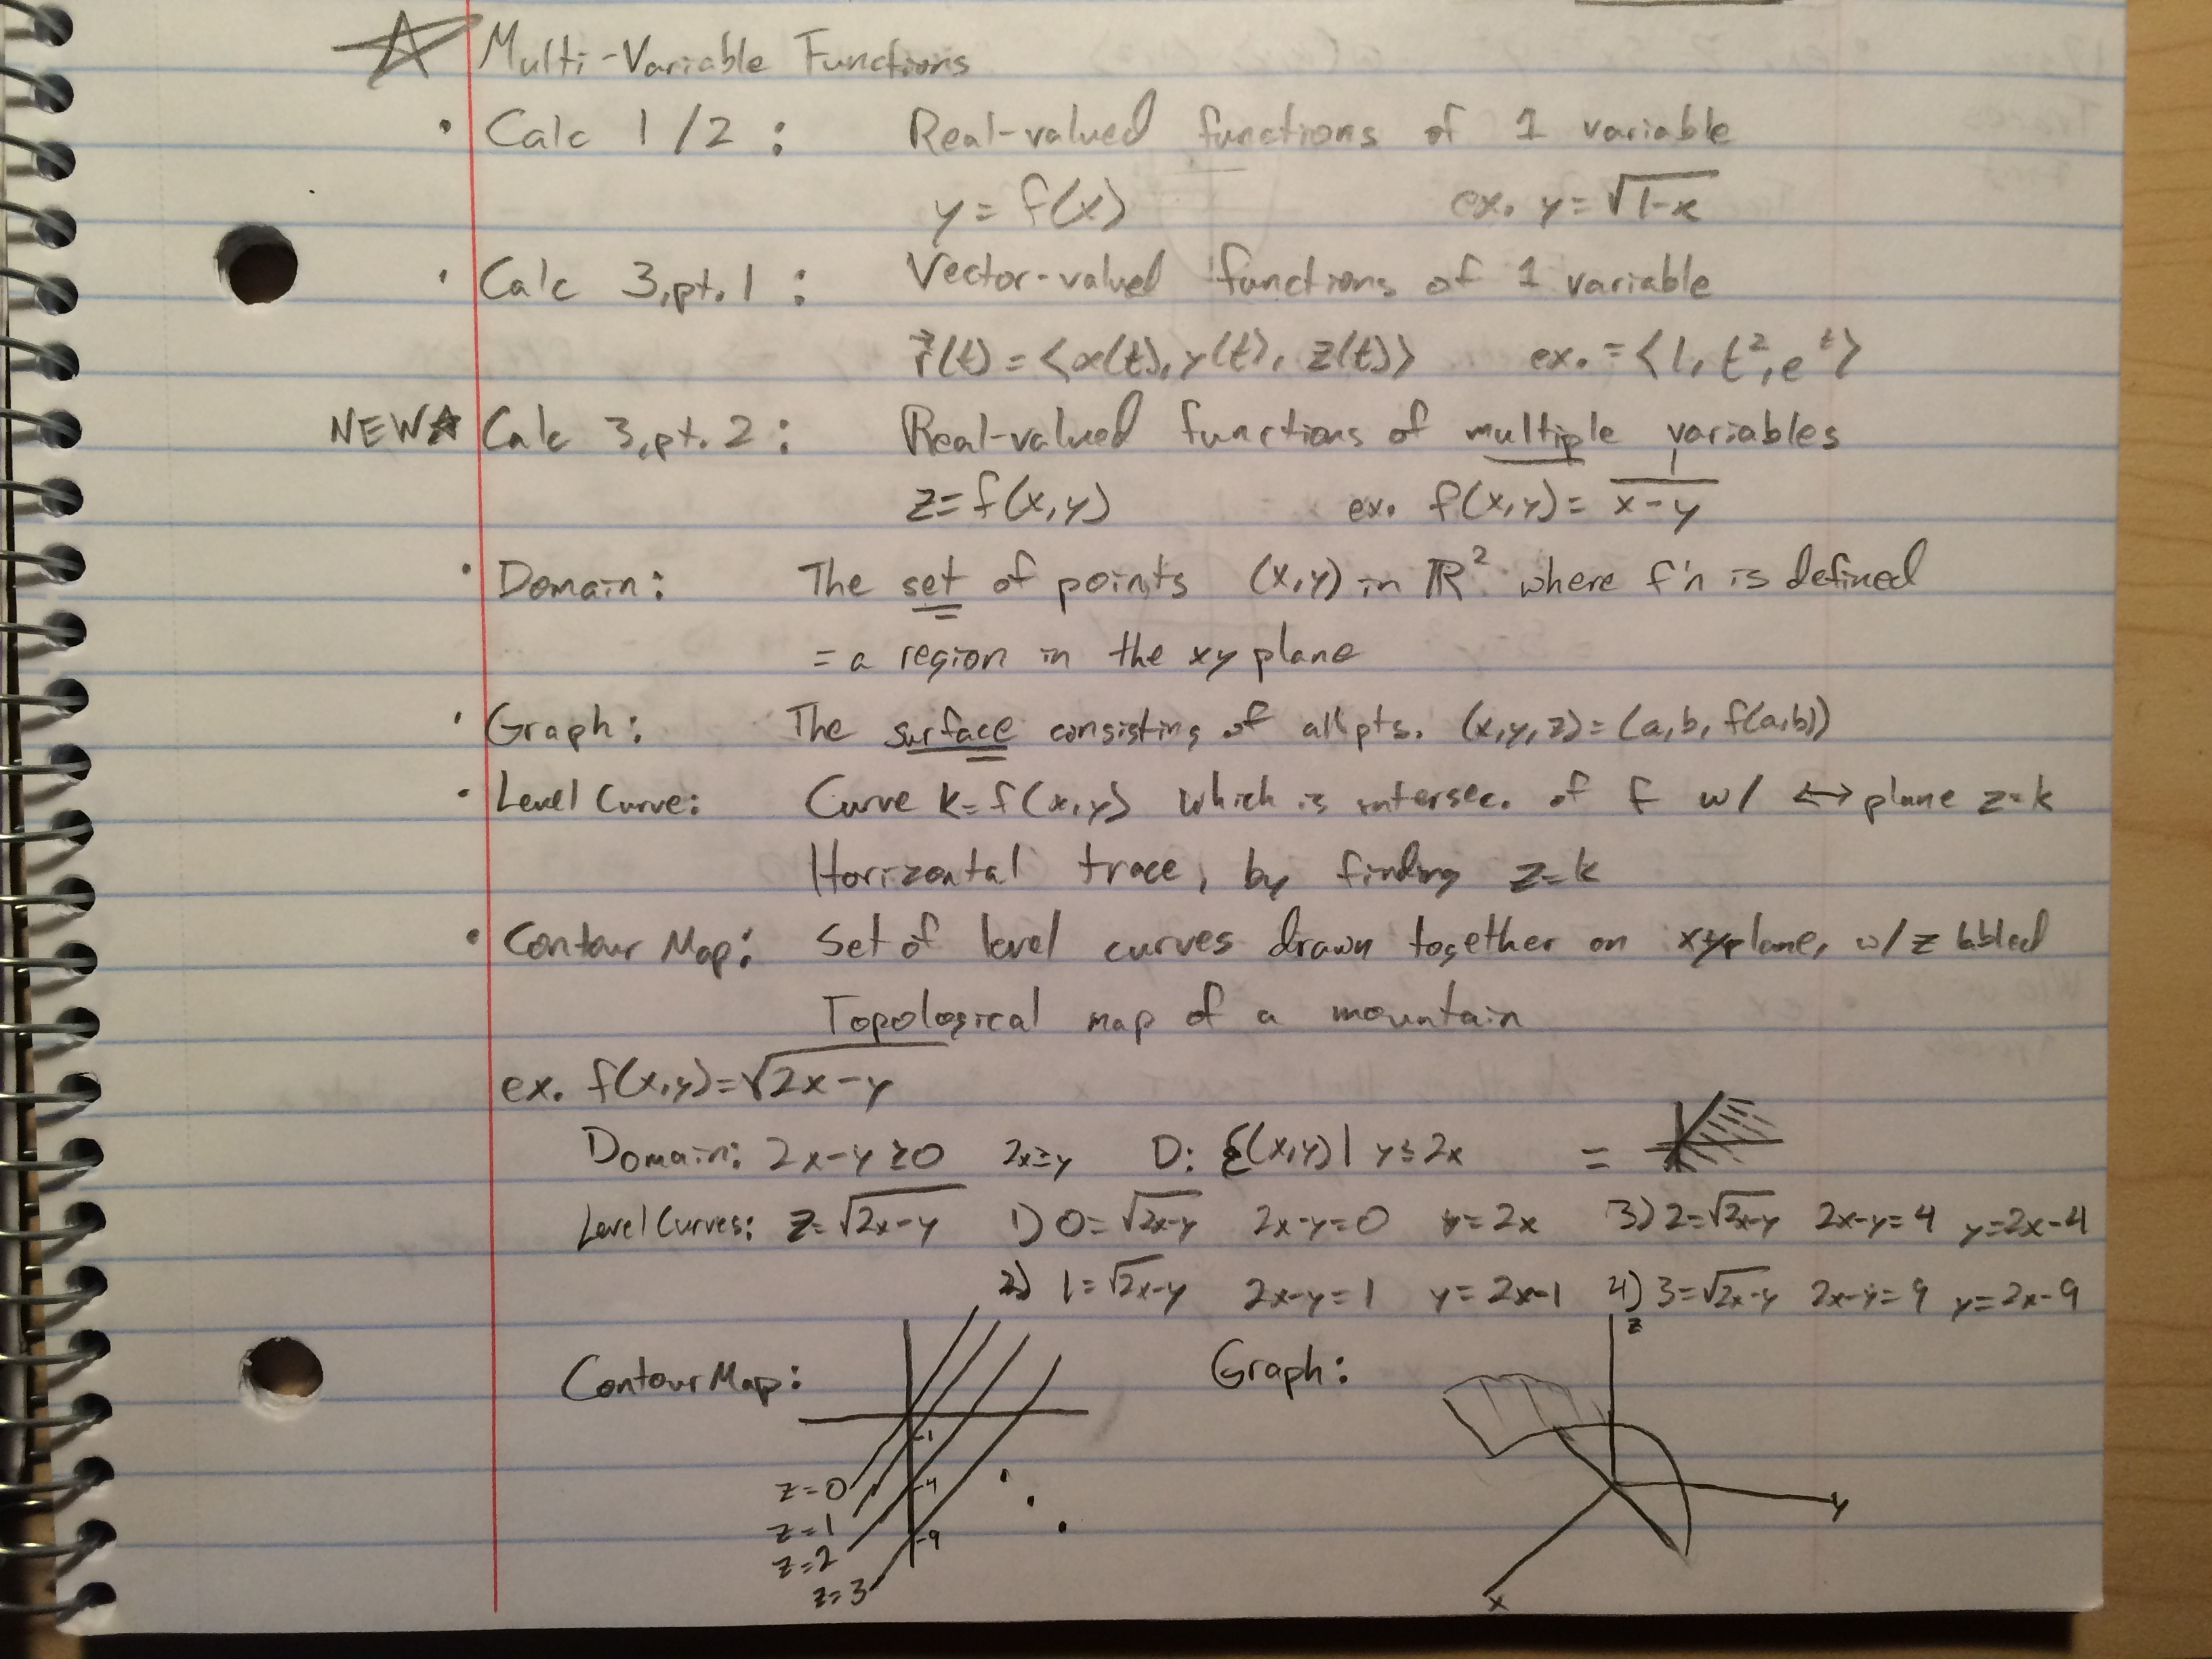 ☆ Multi-Variable Functions
• Calc 1/2: Real-valued functions of 1 variable
y = f(x) ex. y = √(1-x)
• Calc 3, pt. 1: Vector-valued functions of 1 variable
r⃗(t) = ⟨x(t), y(t), z(t)⟩ ex. = ⟨1, t², eᵗ⟩
NEW☆ Calc 3, pt. 2: Real-valued functions of multiple variables
z = f(x,y) ex. f(x,y) = 1/(x-y)
• Domain: The set of points (x,y) in ℝ² where f'n is defined
= a region in the xy plane
• Graph: The surface consisting of all pts. (x,y,z) = (a,b, f(a,b))
• Level Curve: Curve k = f(x,y) which is intersec. of f w/ ↔ plane z=k
Horizontal trace, by finding z=k
• Contour Map: Set of level curves drawn together on xy plane, w/ z labled
Topological map of a mountain
ex. f(x,y) = √(2x-y)
Domain: 2x-y ≥ 0 2x ≥ y D: {(x,y) | y ≤ 2x =
Level Curves: z = √(2x-y) 1) 0 = √(2x-y) 2x-y=0 y=2x 3) 2 = √(2x-y) 2x-y=4 y=2x-4
2) 1 = √(2x-y) 2x-y=1 y=2x-1 4) 3 = √(2x-y) 2x-y=9 y=2x-9
Contour Map: Graph:
z
-1
z=0 -4
y
z=1
-9
z=2
z=3
x